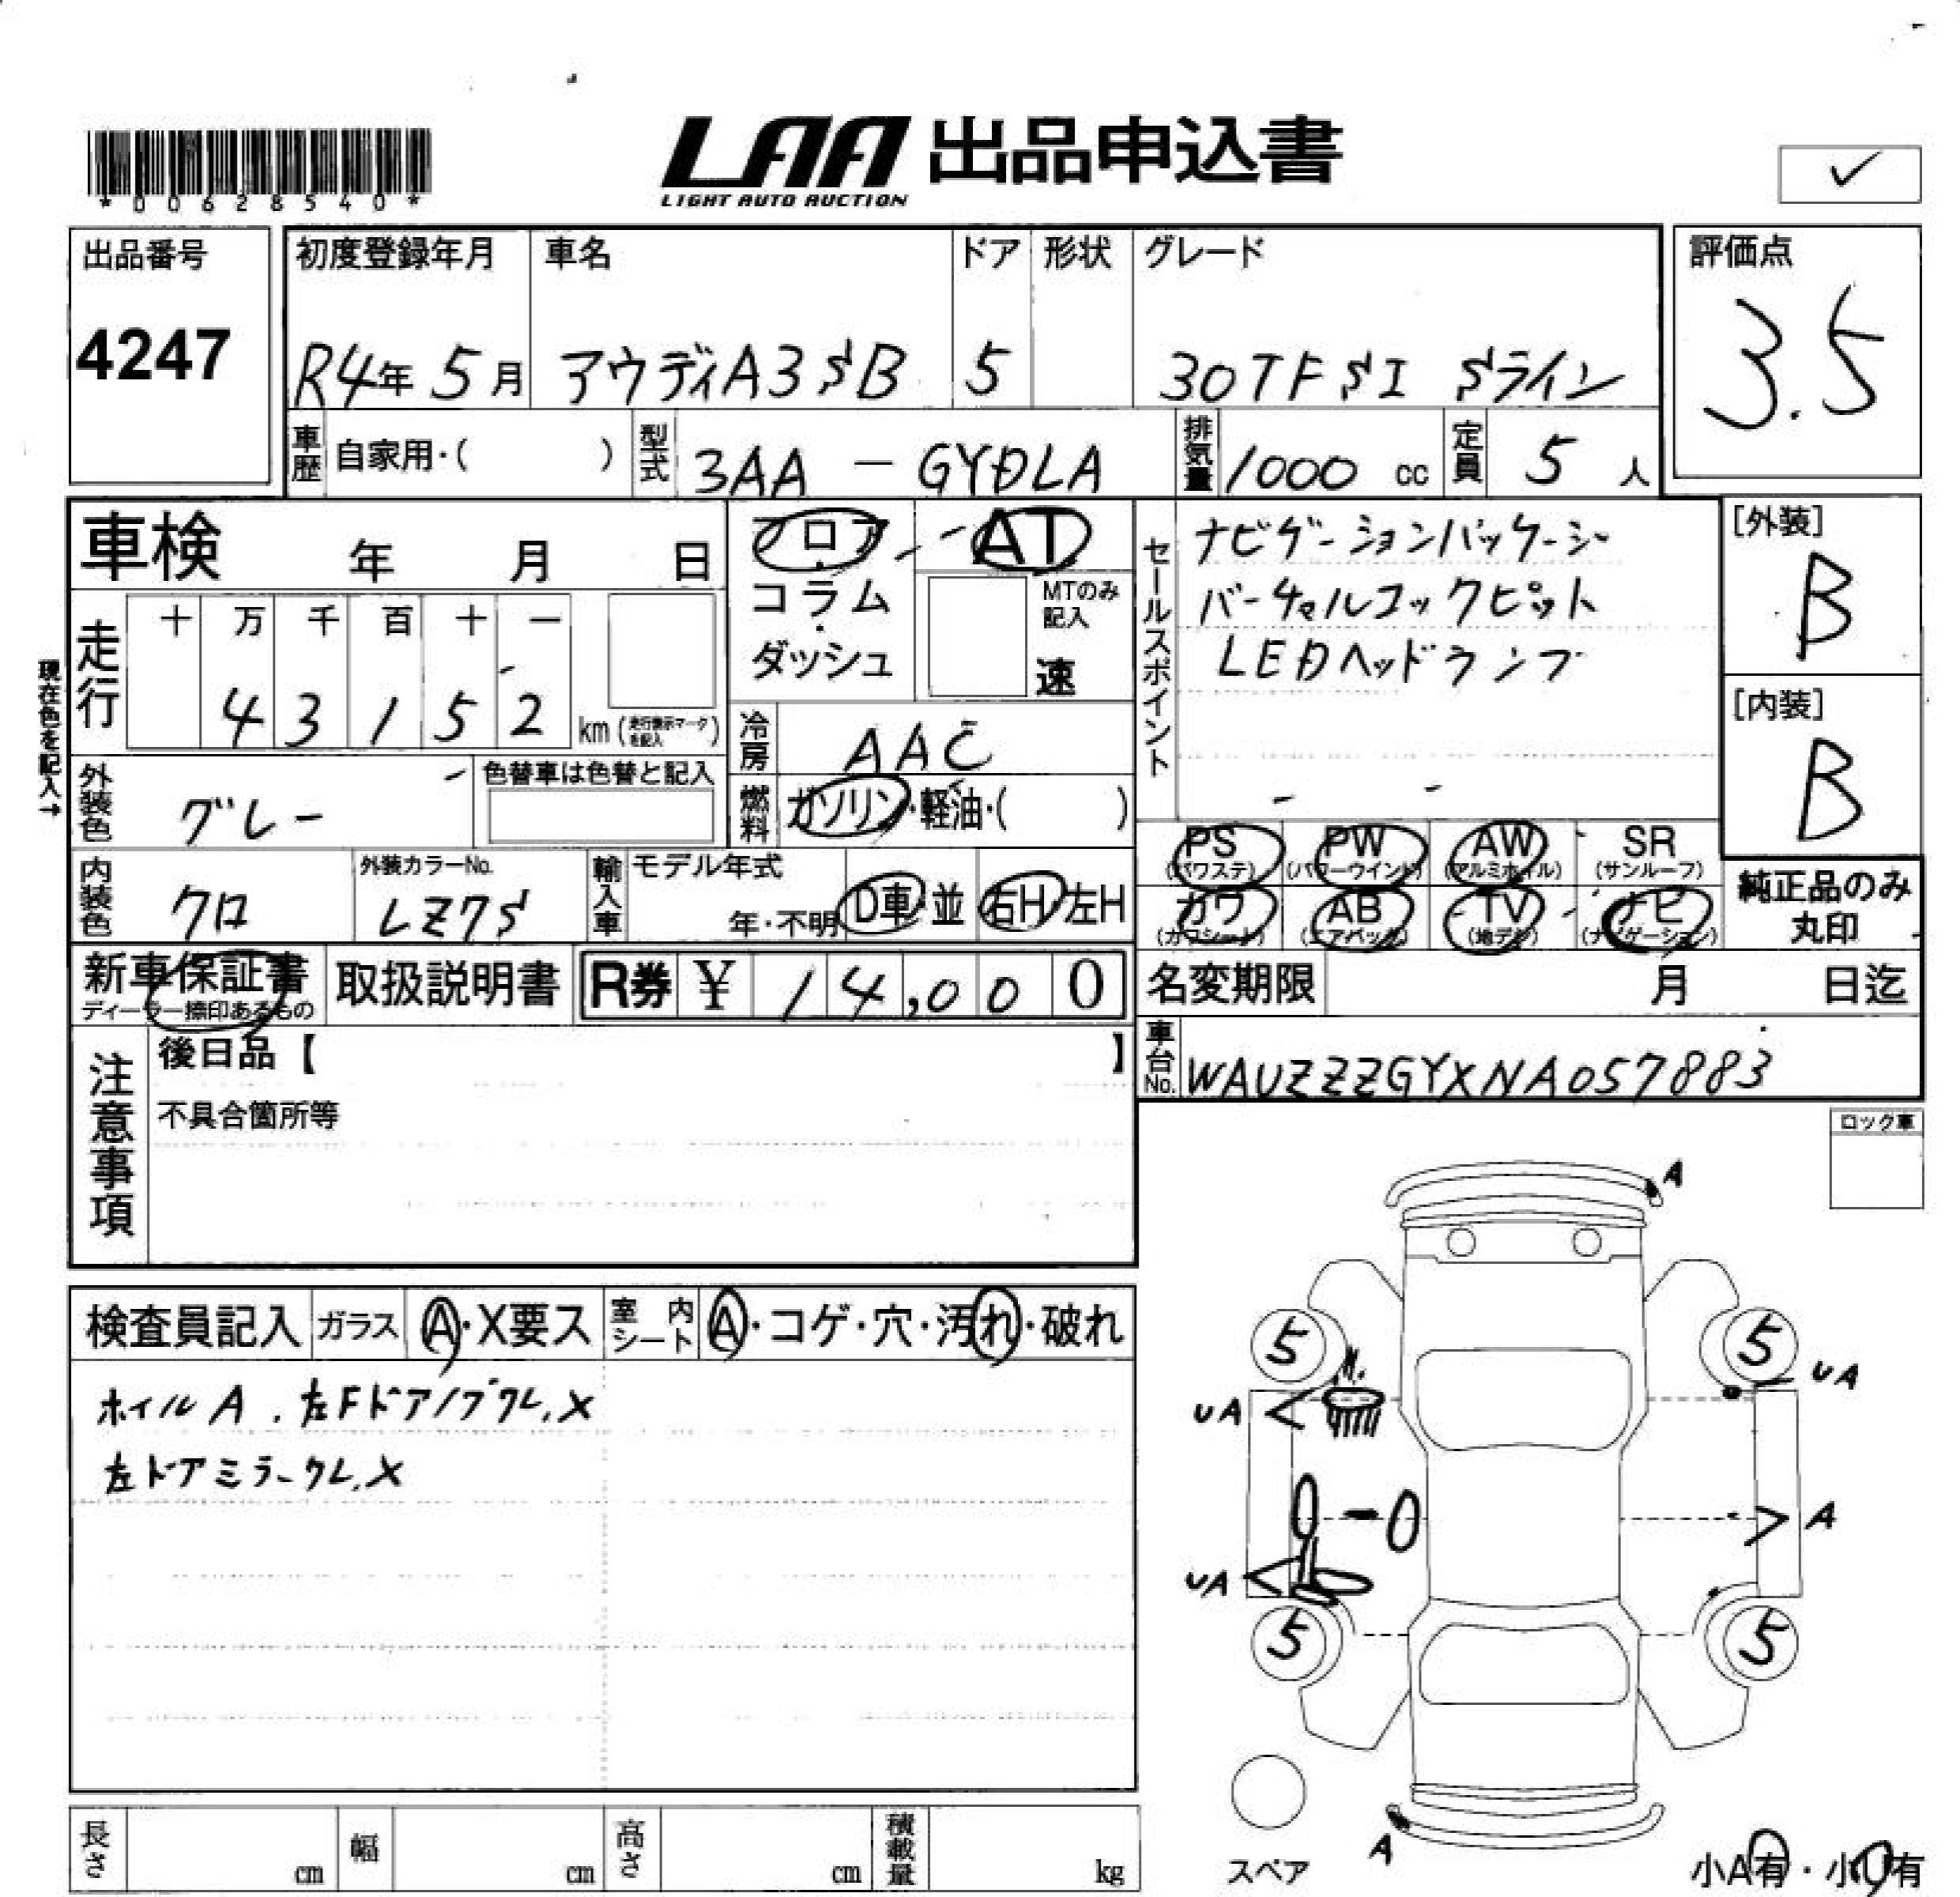 *00628540*
LAA 出品申込書
LIGHT AUTO AUCTION
✓
出品番号
4247
初度登録年月 車名 ドア 形状 グレード
R4年 5月 アウディA3SB 5 30TFSI Sライン
評価点
3.5
車歴 自家用・( ) 型式 3AA - GYDLA 排気量 1000 cc 定員 5 人
車検 年 月 日
フロア・コラム・ダッシュ
AT
MTのみ記入
速
セールスポイント
ナビゲーションパッケージ
バーチャルコックピット
LEDヘッドランプ
[外装]
B
[内装]
B
現在色を記入→
走行 十 万 千 百 十 一
4 3 1 5 2 km (走行表示マークを記入)
冷房 AAC
外装色 グレー 色替車は色替と記入
燃料 ガソリン・軽油・( )
PS (パワステ) PW (パワーウインド) AW (アルミホイル) SR (サンルーフ)
カワ (カワシート) AB (エアバック) TV (地デジ) ナビ (ナビゲーション)
純正品のみ丸印
内装色 クロ 外装カラーNo. LZ7S 輸入車 モデル年式 年・不明 D車・並 右H・左H
新車保証書 取扱説明書 R券 ¥ 14,000
ディーラー捺印あるもの
名変期限 月 日迄
車台No. WAUZZZGYXNA057883
注意事項
後日品【 】
不具合箇所等
ロック車
検査員記入 ガラス A・X要ス 室内シート A・コゲ・穴・汚れ・破れ
ホイルA . 左Fドアノブワレ,X
左ドアミラーワレ,X
A
5 5
UA UA
A
UA
5 5
A
スペア
小A有・小U有
長さ cm 幅 cm 高さ cm 積載量 kg